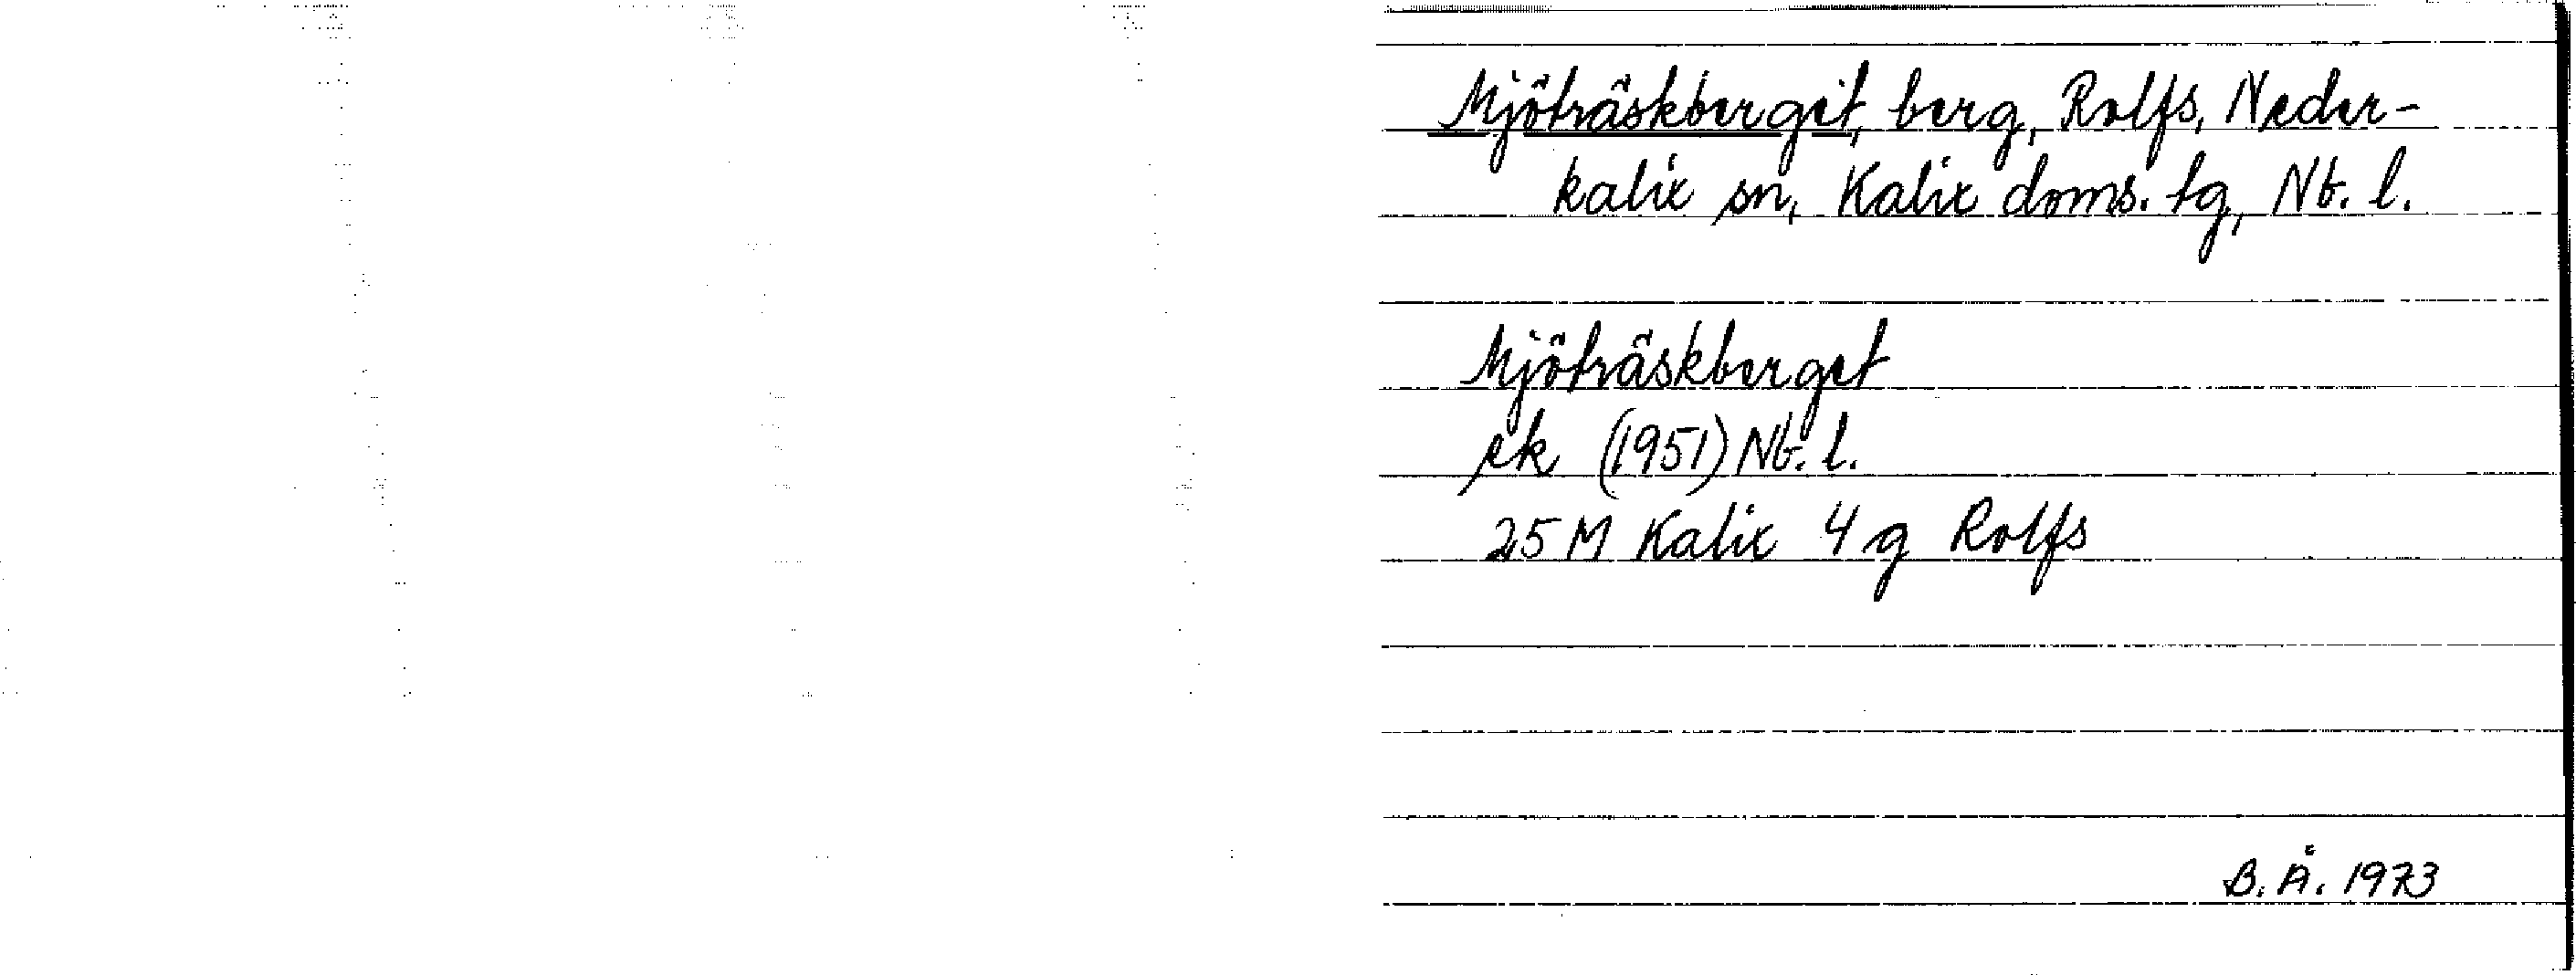 Mjöträskberget, berg, Rolfs, Neder-
kalix sn, Kalix doms. tg, Nb. l.
Mjöträskberget
ek (1951) Nb. l.
25 M Kalix 4 g Rolfs
B. Å. 1973